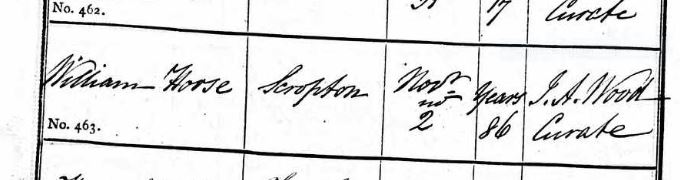 No. 462.
17
Curate
William Hoose Scropton Novr Years J. A. Wood
nd
2 86 Curate
No. 463.